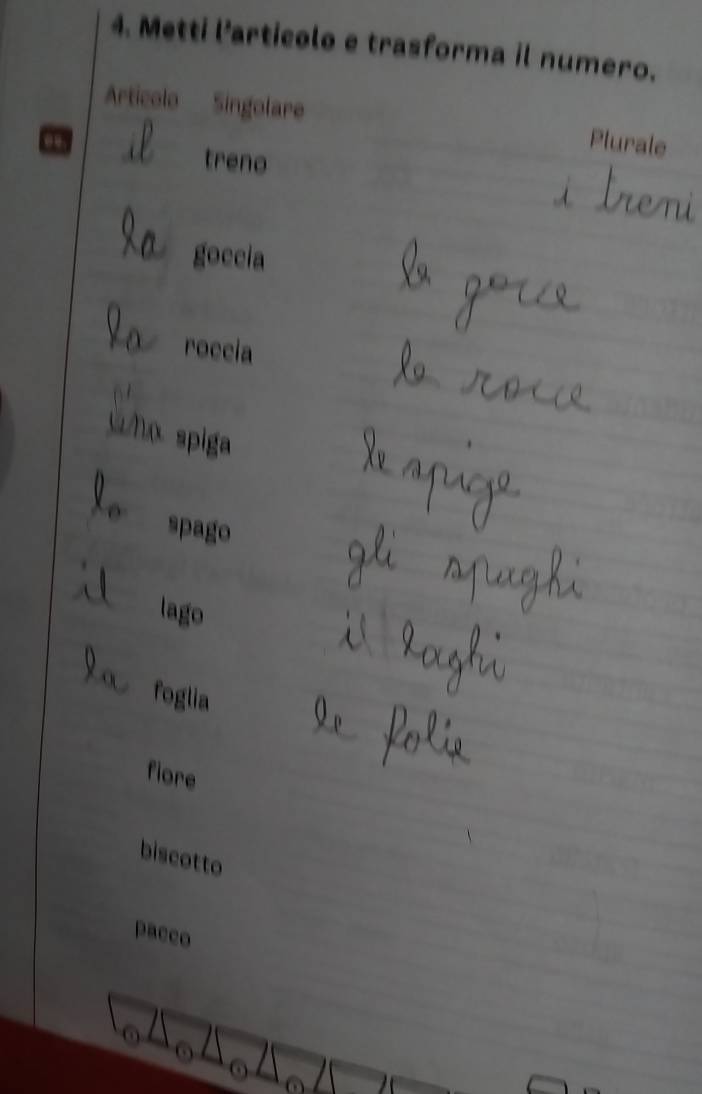 4. Metti l'articolo e trasforma il numero.
Articolo Singolare Plurale
es. il treno i treni
la goccia le gocce
la roccia le rocce
una spiga le spige
lo spago gli spaghi
il lago il laghi
la foglia le folie
fiore
biscotto
pacco